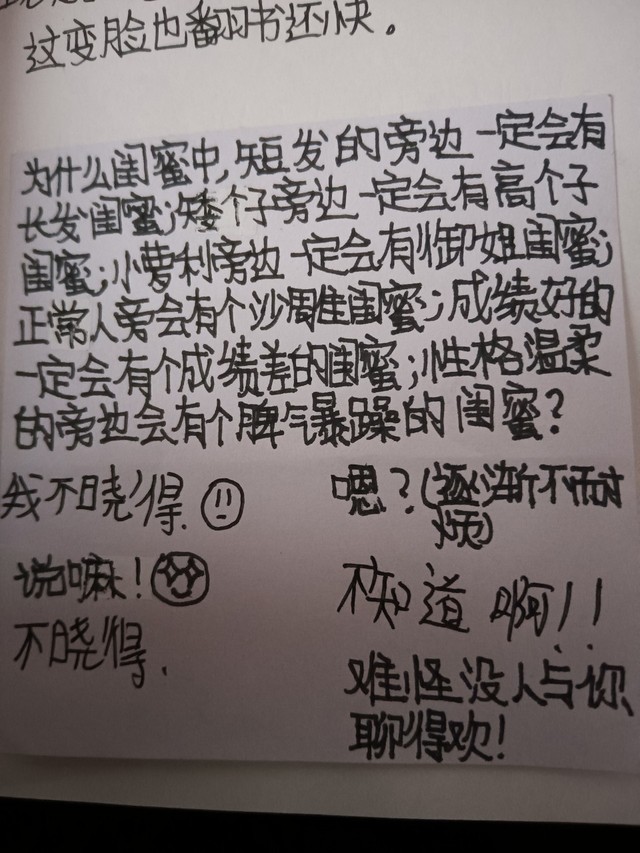 这变脸也翻书还快。
为什么闺蜜中,短发的旁边一定会有
长发闺蜜;矮个子旁边一定会有高个子
闺蜜;小萝利旁边一定会有御姐闺蜜;
正常人旁会有个沙雕闺蜜;成绩好的
一定会有个成绩差的闺蜜;性格温柔
的旁边会有个脾气暴躁的闺蜜?
我不晓得
嗯?(逐渐不耐
烦)
说嘛!
不知道啊!!
不晓得.
难怪没人与你
聊得欢!